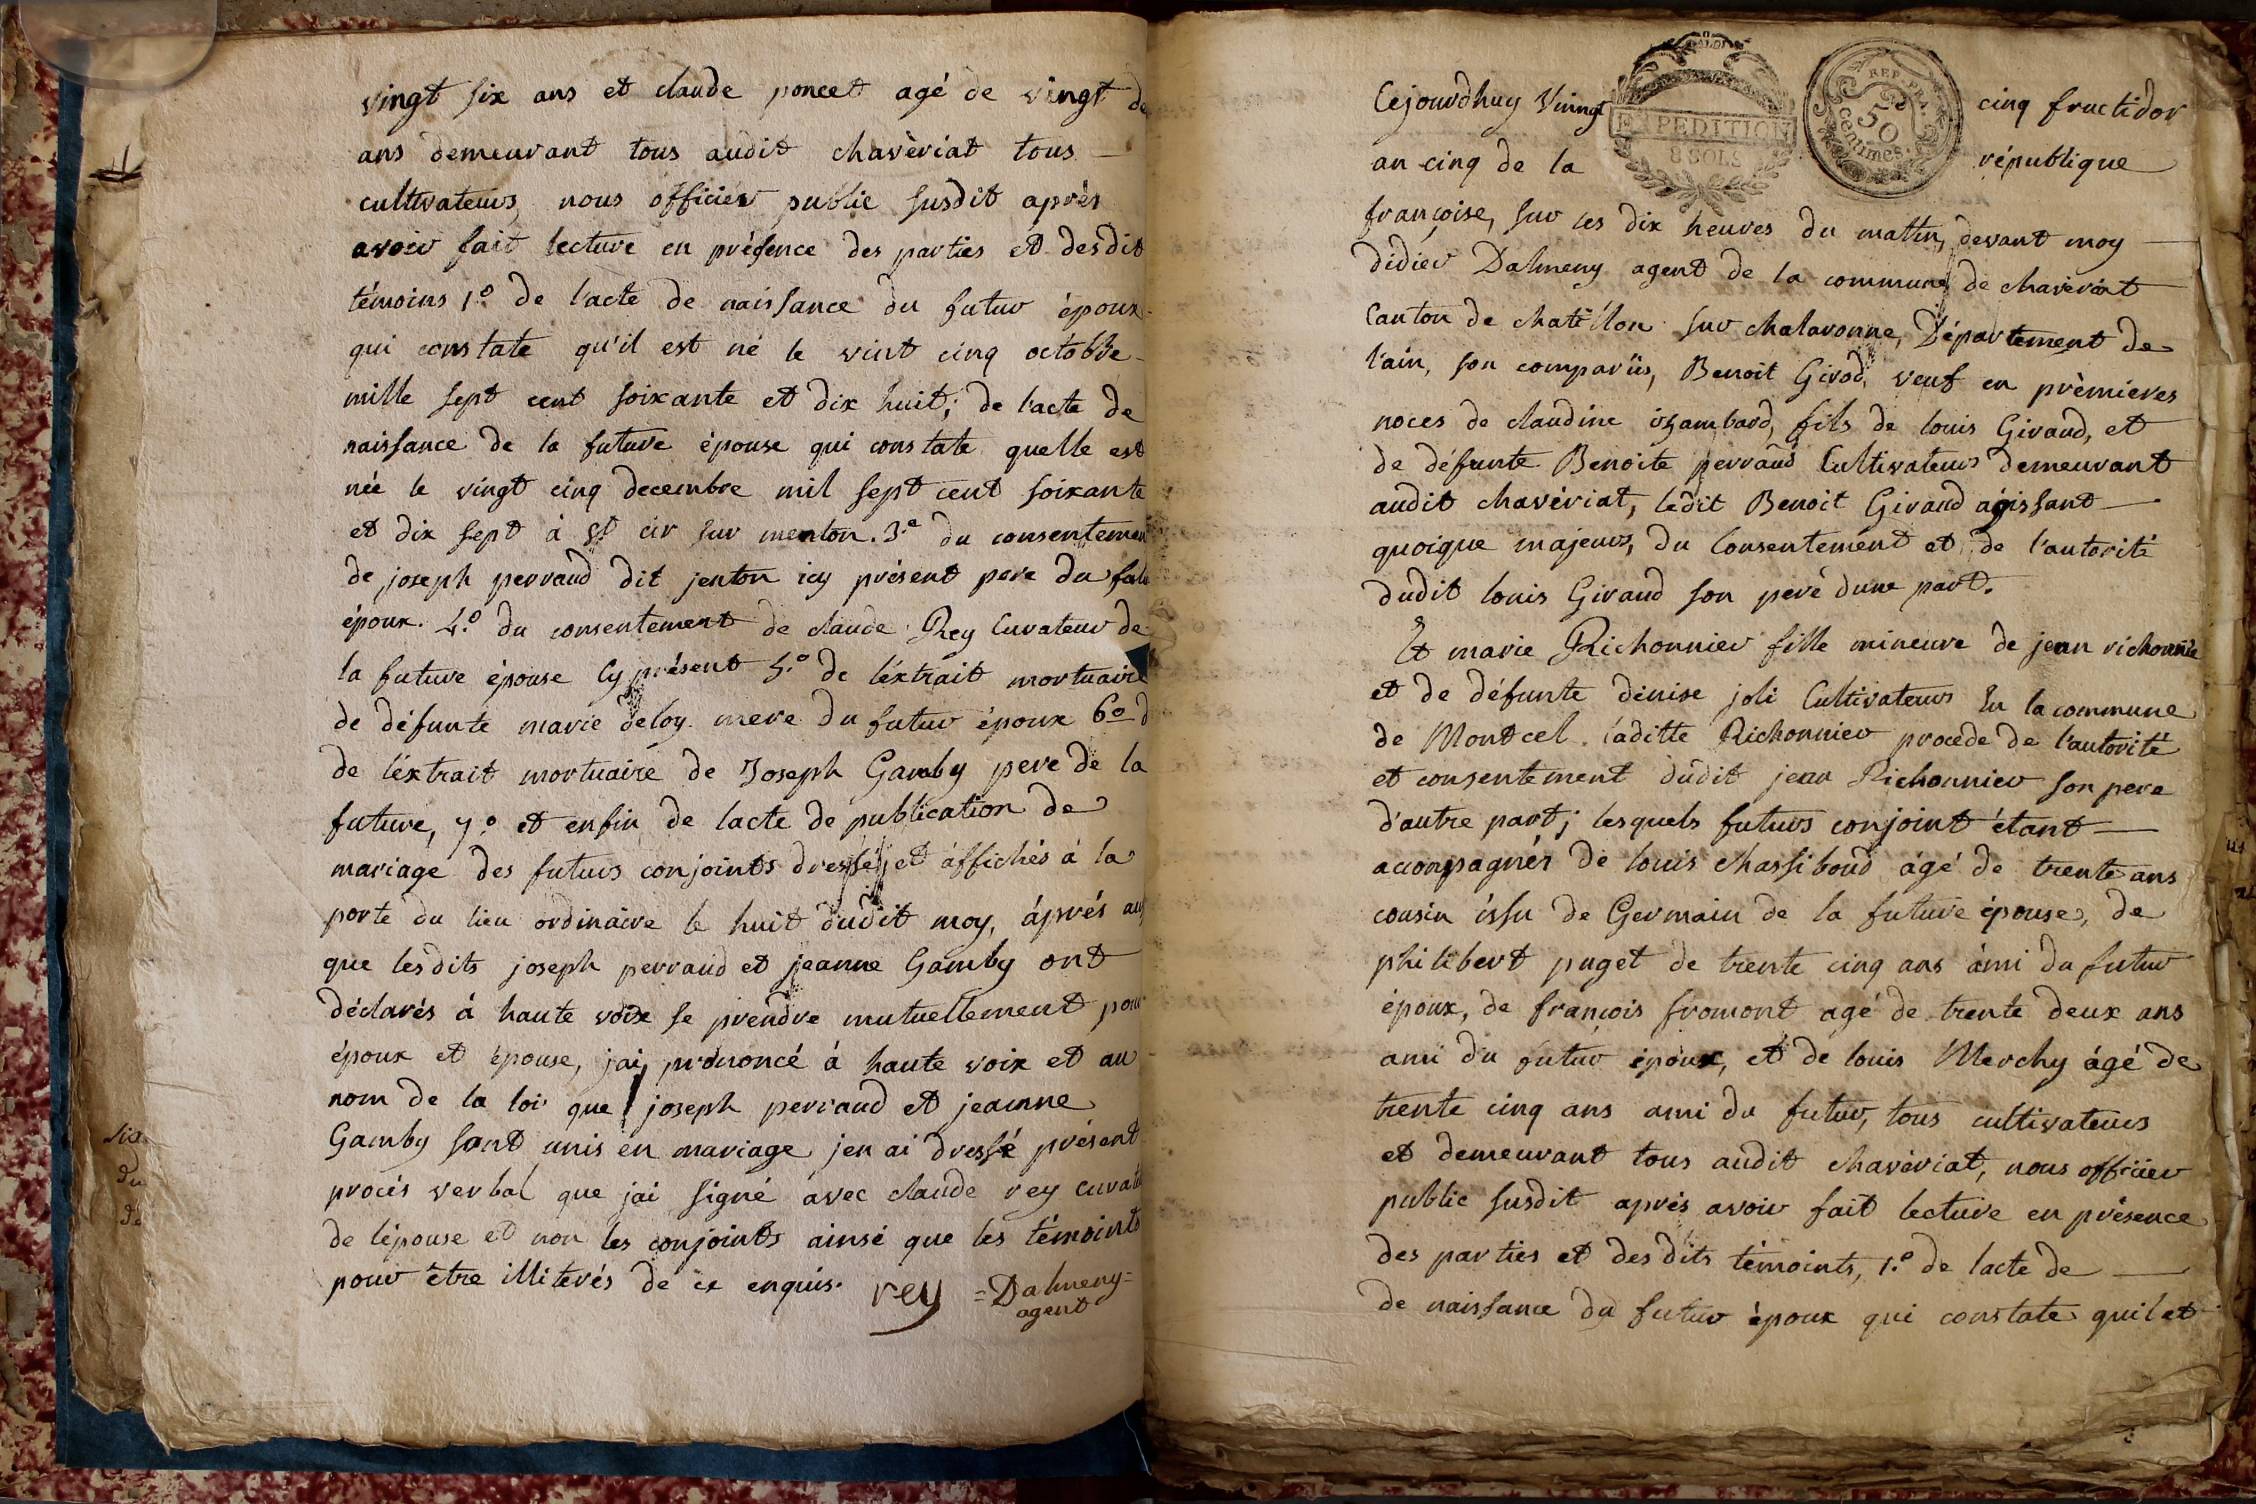 vingt six ans et claude poncet agé de vingt de
ans demeurant tous audit chavèriat tous
cultivateurs, nous officier public susdit après
avoir fait lecture en présence des parties et desdit
témoins 1.º de l'acte de naissance du futur époux
qui constate qu'il est né le vint cinq octobre
mille sept cent soixante et dix huit; de l'acte de
naissance de la future épouse qui constate quelle est
née le vingt cinq decembre mil sept cent soixante
et dix sept à St cir sur menton. 3.º du consentemen
de joseph perraud dit jenton icy présent pere du futu
époux. 4.º du consentement de claude Rey Curateur de
la future épouse Cy présent 5.º de l'éxtrait mortuaire
de défunte marie deloy mere du futur époux 6º d
de l'éxtrait mortuaire de Joseph Gamby pere de la
future, 7.º et enfin de lacte de publication de
mariage des futurs conjoints dressé, et áffichés à la
porte du lieu ordinaire le huit dudit moy, áprés aus
que lesdits joseph perraud et jeanne Gamby ont
déclarés á haute voix se prendre mutuellement pour
époux et épouse, jai, prononcé à haute voix et au
nom de la loi que joseph perraud et jeanne
Gamby sont unis en mariage jen ai dressé présent
procés verbal que jai signé avec claude rey curate
de lépouse et non les conjoints ainsi que les témoints
pour être illiterés de ce enquis. rey =Dalmeny=
agent
six
du
de
Cejourdhuy Vinngt cinq fructidor
EXPEDITION
8 SOLS
REP. FRA.
50
centimes.
an cinq de la république
françoise, sur les dix heures du matin, devant moy
didier Dalmeny agent de la commune de chavèriat
Canton de chatillon sur chalaronne, Département de
l'ain, son comparüs, Benoit Girod, veuf en prèmieres
noces de claudine izambard, fils de louis Giraud, et
de défunte Benoite perraud Cultivateurs demeurant
audit chavériat, ledit Benoit Giraud agissant
quoique majeurs, du Consentement et de l'autorité
dudit louis Giraud son peré dune part.
Et marie Richonnier fille mineure de jean richonnie
et de défunte dénise joli Cultivateurs En la commune
de Montcel. laditte Richonnier procede de l'autorité
et consentement dudit jean Richonnier son pere
d'autre part; lesquels futurs conjoint étant
accompagnés de louis chassiboud ágé de trente ans
cousin issu de Germain de la future épouse, de
philibert puget de trente cinq ans ámi du futur
époux, de françois fromont agé de trente deux ans
ami du futur époux, et de louis Merchy ágé de
trente cinq ans ami du futur, tous cultivateurs
et demeurant tous audit chavériat, nous officier
public susdit aprés avoir fait lecture en présence
des parties et desdits témoints, 1.º de lacte de
de naissance du futur époux qui constate quil et